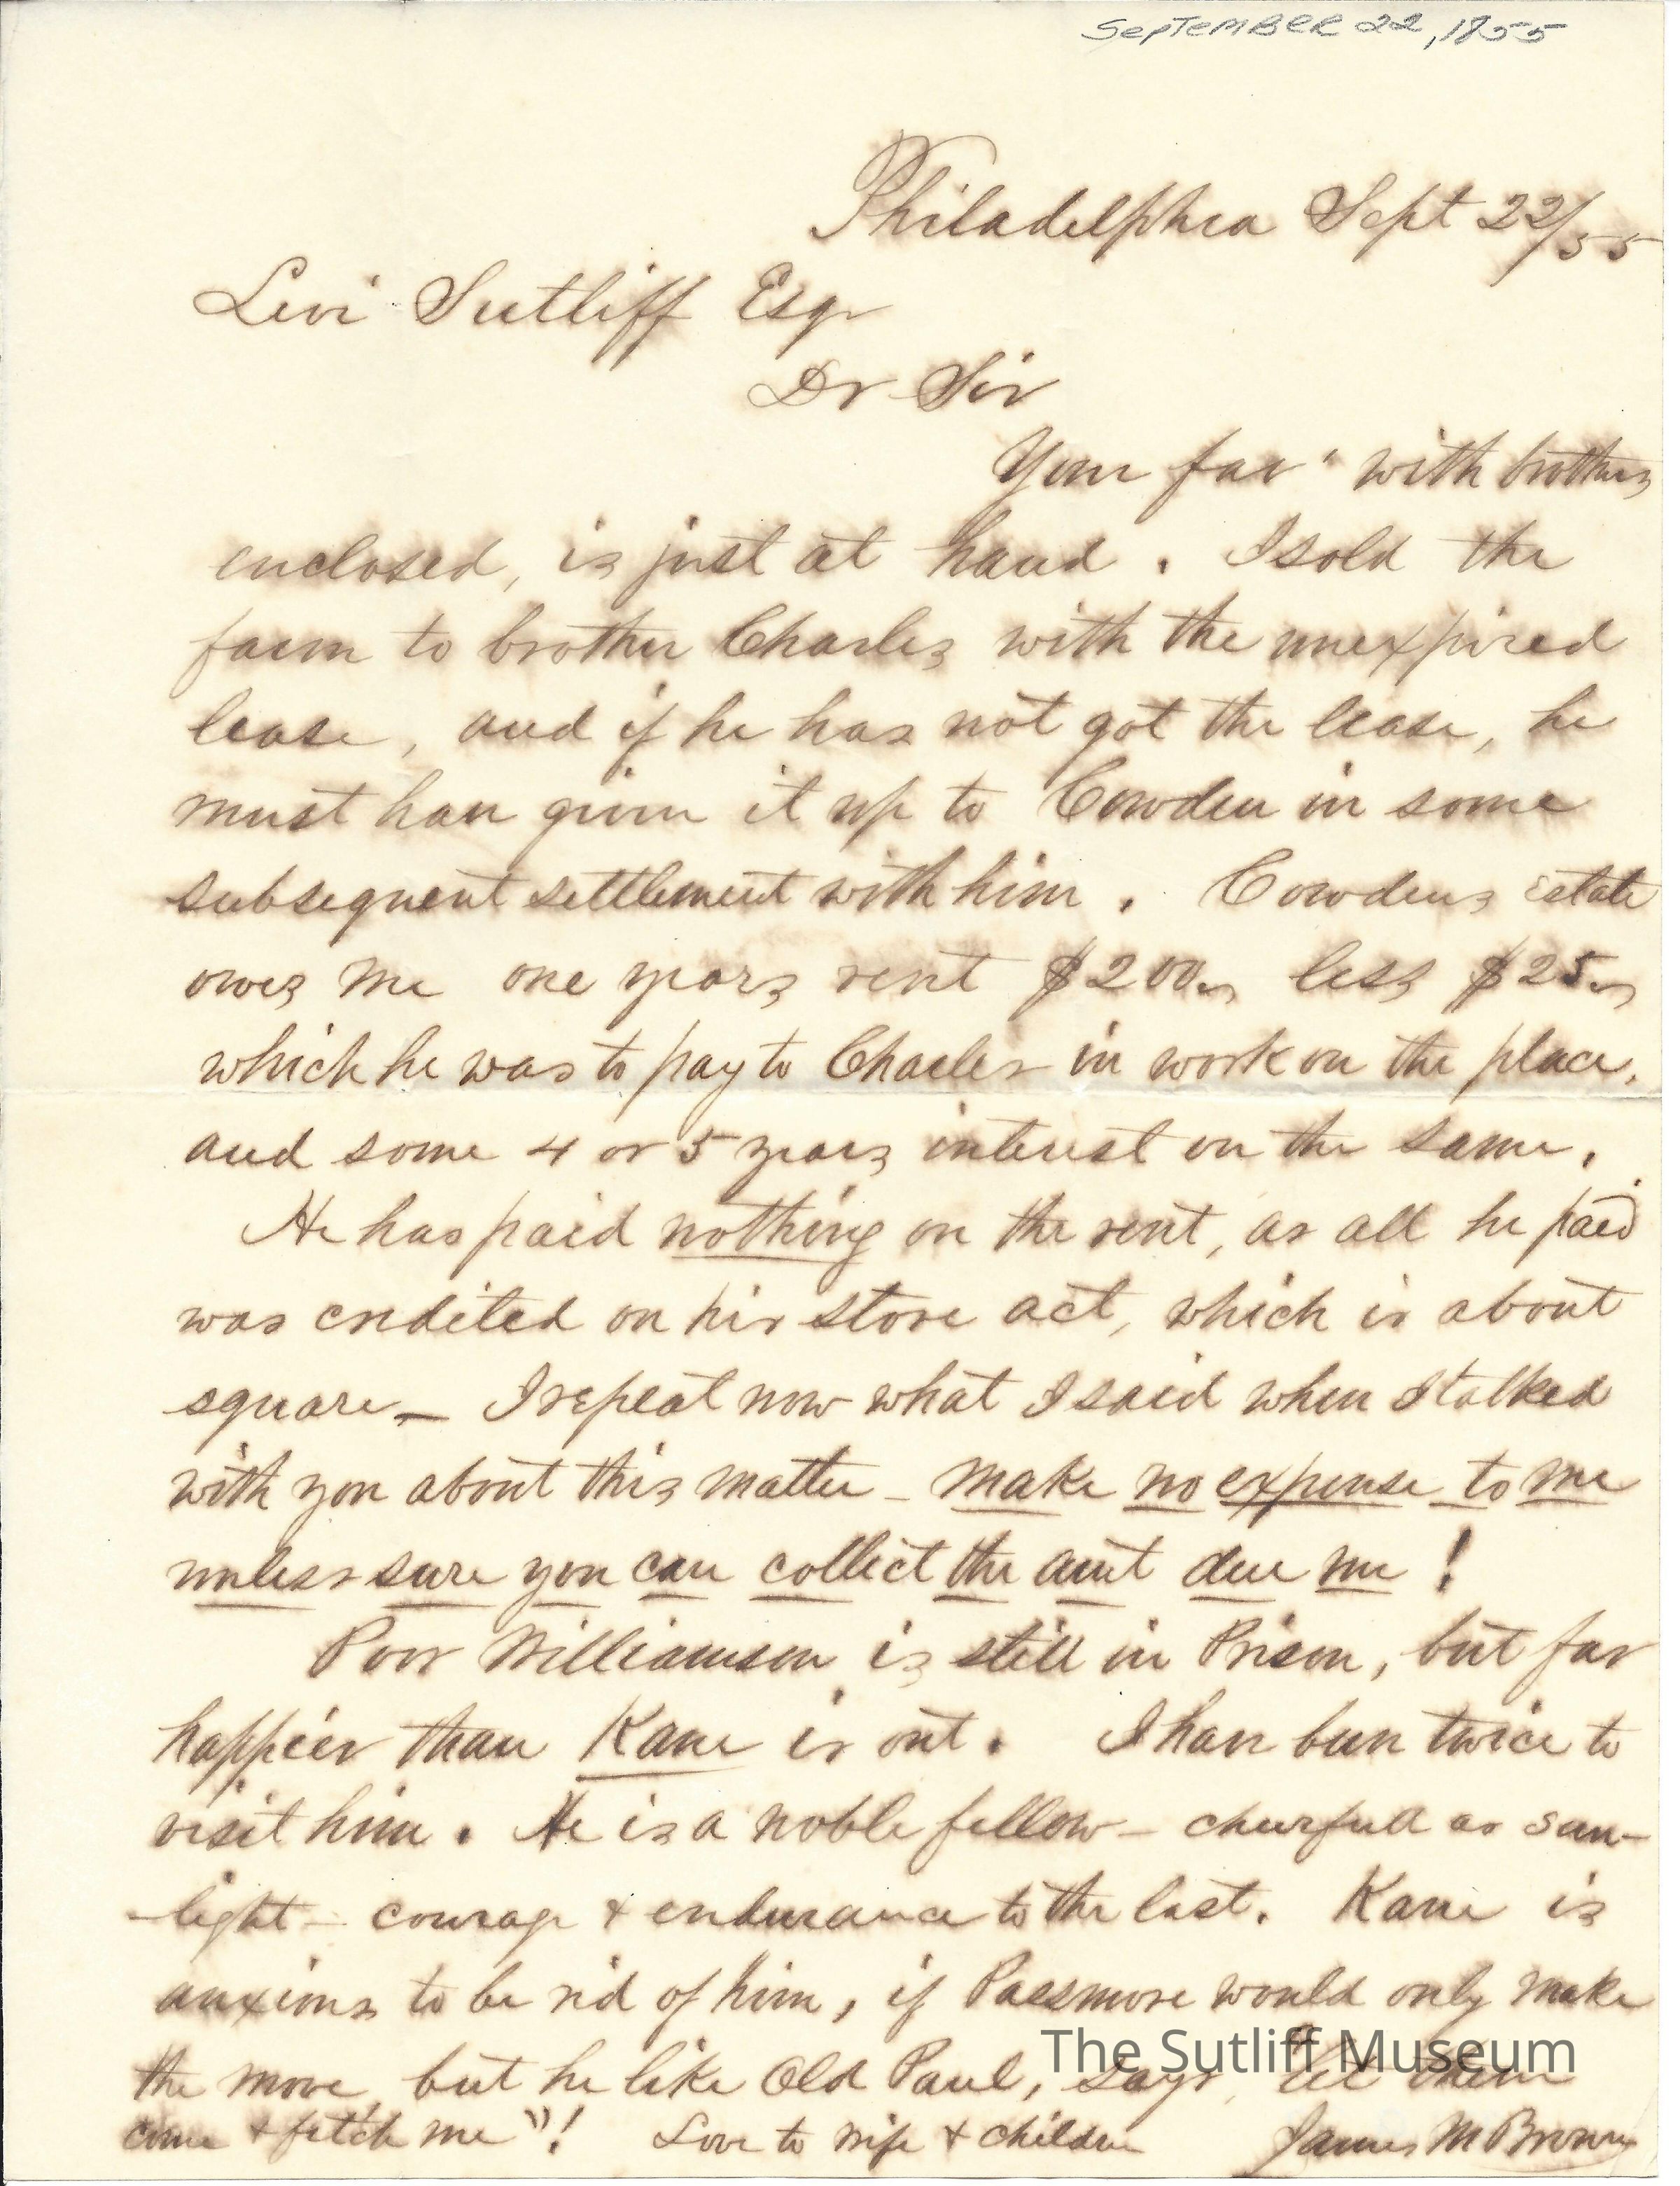 SEPTEMBER 22, 1855
Philadelphia Sept 22/55
Levi Sutliff Esqr
Dr Sir
Your fav' with brothers
enclosed, is just at hand. I sold the
farm to brother Charles with the unexpired
lease, and if he has not got the lease, he
must have given it up to Cowden in some
subsequent settlement with him. Cowdens Estate
owes me one years rent $200 less $25
which he was to pay to Charles in work on the place,
and some 4 or 5 years interest on the same.
He has paid nothing on the rent, as all he paid
was credited on his store act, which is about
square — I repeat now what I said when I talked
with you about this matter — make no expense to me
unless sure you can collect the amt due me!
Poor Williamson is still in Prison, but far
happier than Kane is out. I have been twice to
visit him. He is a noble fellow — cheerfull as sun-
-light — courage & endurance to the last. Kane is
anxious to be rid of him, if Passmore would only make
the move, but he like Old Paul, says, let them
come & fetch me"! Love to wife & children James M Brown
The Sutliff Museum